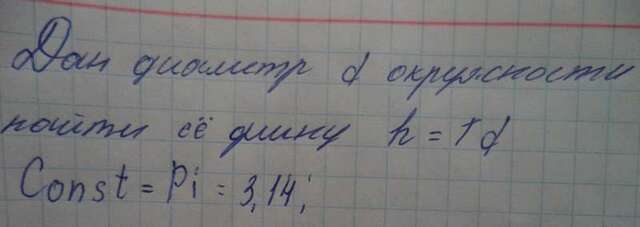 Дан диаметр d окружности
найти её длину h = т d
Const = Pi = 3,14;